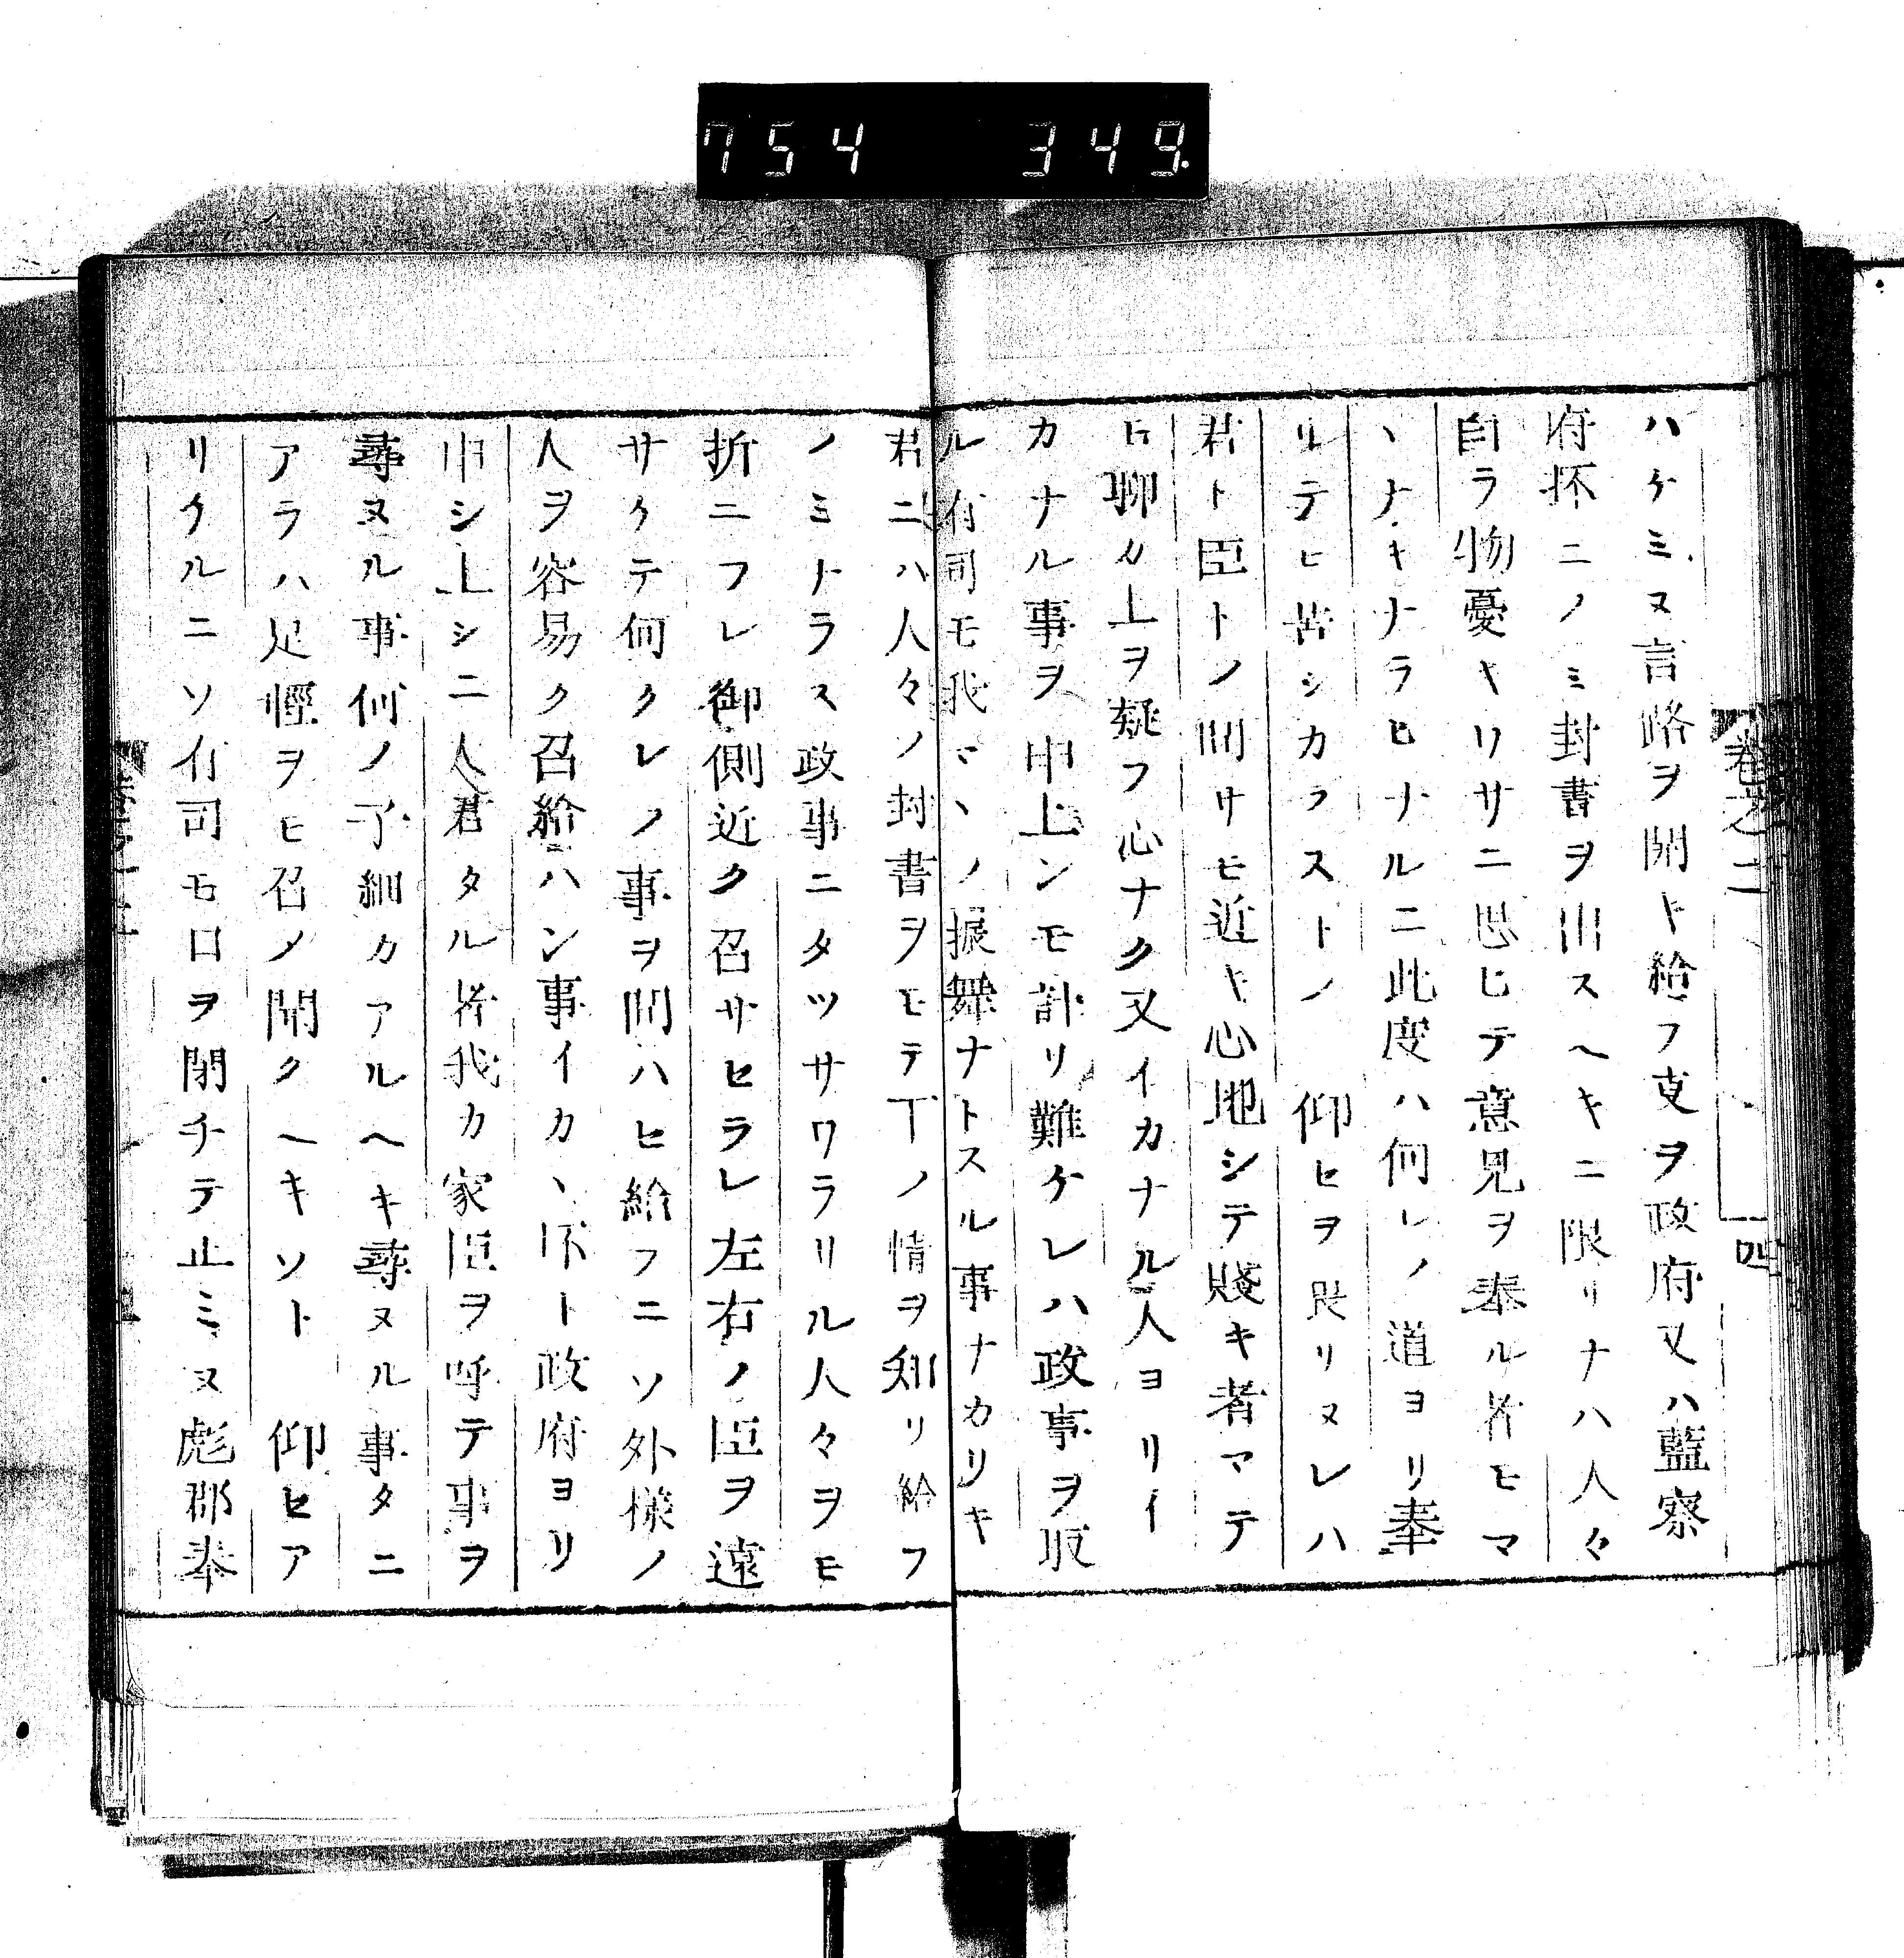 754 349.
巻之二
四
ハケミヌ言路ヲ開キ給フ支ヲ政府又ハ藍察
府抔ニノミ封書ヲ出スヘキニ限リナハ人々
自ラ物憂キワサニ思ヒテ意見ヲ奉ル者モマ
ヽナキナラヒナルニ此度ハ何レノ道ヨリ奉
リテモ苦シカラストノ　仰セヲ畏リヌレハ
君ト臣トノ間サモ近キ心地シテ賤キ者マテ
ヒ聊カ上ヲ疑フ心ナク又イカナル人ヨリイ
カナル事ヲ申上ンモ計リ難ケレハ政事ヲ取
ル有司モ我マヽノ振舞ナトスル事ナカリキ
君ニハ人々ノ封書ヲモテ下ノ情ヲ知リ給フ
ノミナラス政事ニタツサワラリル人々ヲモ
折ニフレ御側近ク召サセラレ左右ノ臣ヲ遠
サケテ何クレノ事ヲ問ハセ給フニソ外様ノ
人ヲ容易ク召給ハン事イカヽ抔ト政府ヨリ
申シ上シニ人君タル者我カ家臣ヲ呼テ事ヲ
尋ヌル事何ノ子細カアルヘキ尋ヌル事タニ
アラハ足軽ヲモ召ノ聞クヘキソト　仰セア
リケルニソ有司モ口ヲ閉チテ止ミヌ彪郡奉